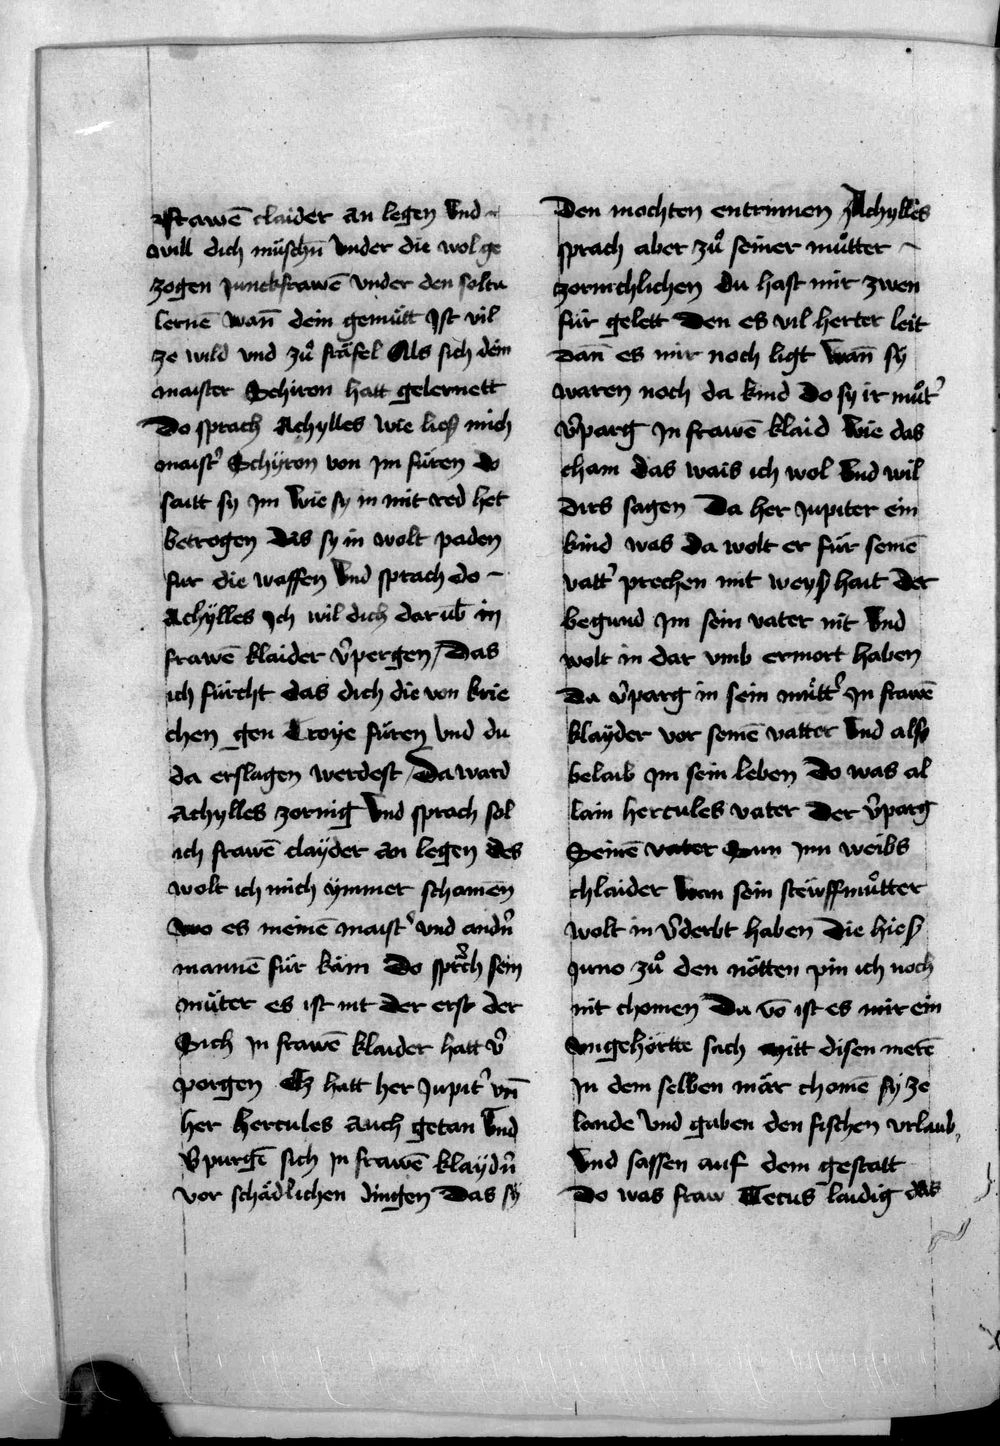 frawē claider an legen Vnd
will dich müschn̄ Vnder die wolge
zogen Junckfrawē vnder den soltu
lernē wan̄ dein gemütt Jst vil
ze wild vnd zů fräfel Als sich dein
maister Schiron hatt gelernett
Do sprach Achylles wie lies mich
maist' Schÿron von Jm füren do
saitt sy Jm Wie sy in mit red het
betrogen Das sy in wolt paden
fur die waffen Vnd sprach do
Achÿlles Ich wil dich darub̄ in
frawē klaider v̄pergen / Das
ich fürcht das dich die von krie
chen gen Troÿe füren vnd du
da erslagen werdest / Da ward
Achylles zornig Vnd sprach sol
ich frawē claÿder an legen des
wolt ich mich ÿmmer schamen
wo es meinē maist' vnd andn̄
mannē für käm Do sprach sein
müter es ist nit der erst der
Sich Jn frawē klaider hatt v̄
porgen Es hatt her Jupit' vn̄
her hercules auch getan Vnd
v̄purgē sich Jn frawē klaÿdn̄
vor schädlichen dingen Das sÿ
Den mochten entrinnen Achylles
sprach aber zů seiner můtter
zornichlichen du hast mir zwen
für gelett Den es vil herter leit
dan̄ es mir noch ligt Wan̄ sÿ
waren noch da kind Do sy ir můt'
v̄parg Jn frawē klaid Wie das
cham das wais ich wol Vnd wil
dirs sagen Da her Jupiter ein
kind was Da wolt er für seinē
vatt' prechen mit weyshait Der
begund Jm sein vater nit Vnd
wolt in dar vmb ermort haben
Da v̄parg in sein mütt' Jn frawē
klaÿder vor seinē vatter Vnd also
belaib Jm sein leben Do was al
lain hercules vater Der v̄parg
Seinē vater Sun Jnn weibs
chlaider Wan sein stewffmůtter
wolt in v̄derbt haben Die hies
Juno zů den nötten pin ich noch
nit chomen Da vō ist es mir ein
vngehörtte sach Mitt disen merē
Jn dem selben mär chomē sÿ ze
lande Vnd gaben den fischen vrlaub
Vnd sassen auf dem gestatt
Do was fraw Tetus laidig das